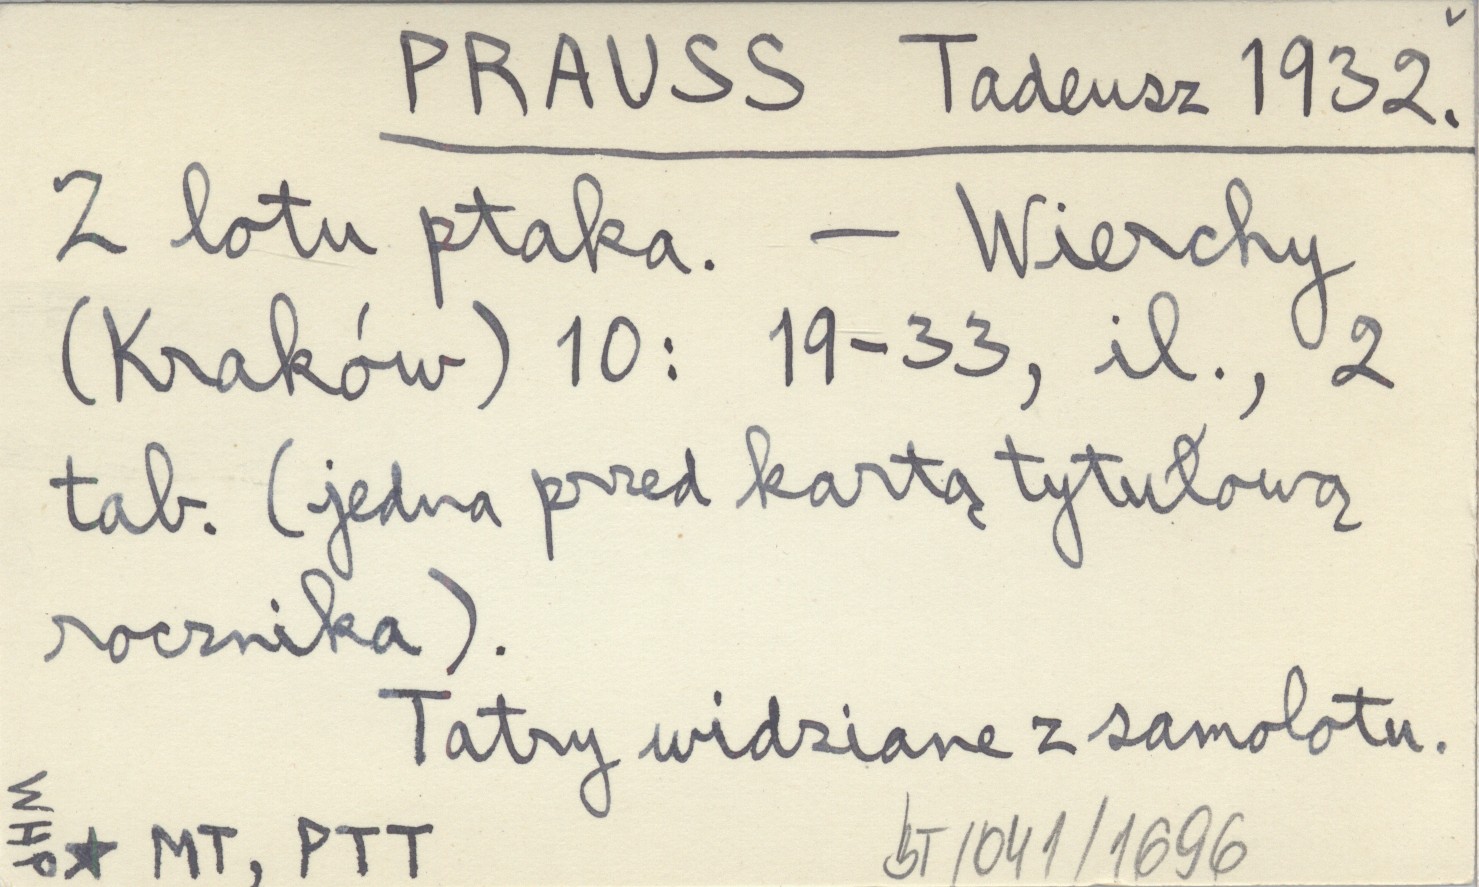 PRAUSS Tadeusz 1932.
Z lotu ptaka. — Wierchy
(Kraków) 10: 19-33, il., 2
tab. (jedna przed kartą tytułową
rocznika).
Tatry widziane z samolotu.
WHP
★ MT, PTT
BT/041/1696